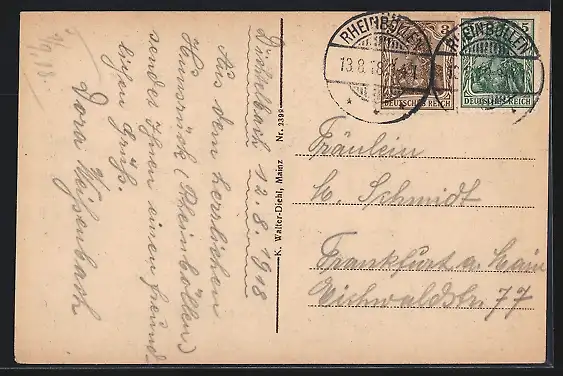 9/9.18.
Dichtelbach 12.8.1918
Aus dem herrlichen
Hunsrück (Rheinböllen)
sendet Ihnen einen freund-
lichen Gruß.
Dora Weißenbach
K. Walter-Diehl, Mainz Nr. 2392
RHEINBÖLLEN
13.8.18
3
DEUTSCHES REICH
RHEINBÖLLEN
5
DEUTSCHES REICH
Fräulein
M. Schmidt
Frankfurt a. Main
Eichwaldstr. 77